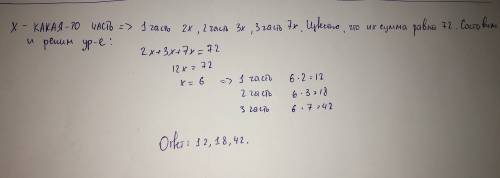 X - КАКАЯ-ТО ЧАСТЬ => 1 часть 2x, 2 часть 3x, 3 часть 7x. что их сумма равна 72. Составим
и решим ур-е:
2x+3x+7x=72
12x=72
x=6 => 1 часть 6·2=12
2 часть 6·3=18
3 часть 6·7=42
Ответ: 12, 18, 42.